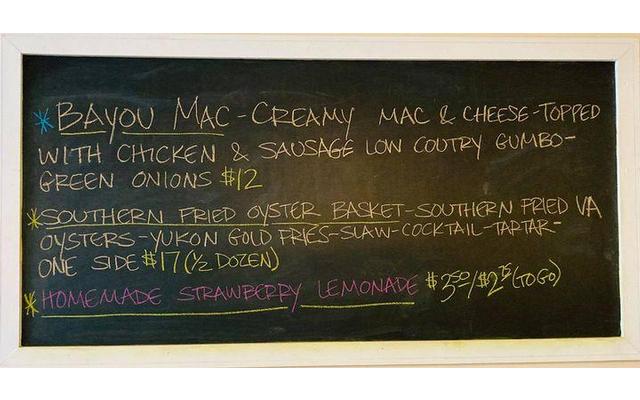 *BAYOU MAC-CREAMY MAC & CHEESE-TOPPED
WITH CHICKEN & SAUSAGE LOW COUTRY GUMBO-
GREEN ONIONS $12
*SOUTHERN FRIED OYSTER BASKET-SOUTHERN FRIED VA
OYSTERS-YUKON GOLD FRIES-SLAW-COCKTAIL-TARTAR-
ONE SIDE $17 (1/2 DOZEN)
*HOMEMADE STRAWBERRY LEMONADE $3.50/$2.75 (TO GO)